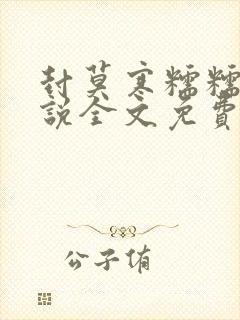 封莫寒糯糯
説全文免費
公子侑